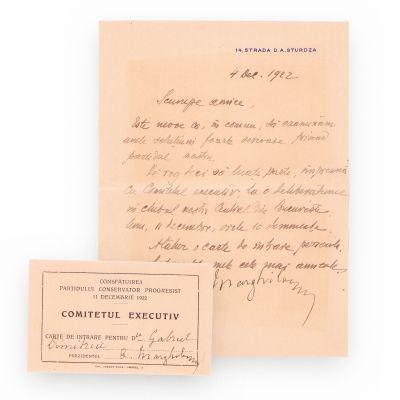 14, STRADA D. A. STURDZA
4 Dec. 1922
Scumpe amice,
Este nevoe ca, in comun, să examinăm
unele soluțiuni foarte serioase privind
partidul nostru.
Vă rog deci să luați parte, împreună
cu Comitetul executiv la o deliberațiune
in clubul nostru Central din București
luni, 11 decembrie, orele 10 dimineața.
Alătur o carte de intrare personală.
cele mai amicale
Marghiloman
CONSFĂTUIREA
PARTIDULUI CONSERVATOR PROGRESIST
11 DECEMBRIE 1922
COMITETUL EXECUTIV
CARTE DE INTRARE PENTRU Dl. Gabriel
Dimitriu
PREZIDENTUL A. Marghiloman